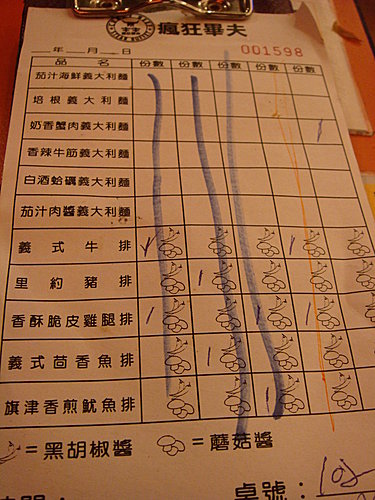 瘋狂畢夫
年 月 日 001598
品名 份數 份數 份數 份數 份數
茄汁海鮮義大利麵
培根義大利麵
奶香蟹肉義大利麵
香辣牛筋義大利麵
白酒蛤蠣義大利麵
茄汁肉醬義大利麵
義式牛排
里約豬排
香酥脆皮雞腿排
義式茴香魚排
旗津香煎魷魚排
=黑胡椒醬 =蘑菇醬
桌號：